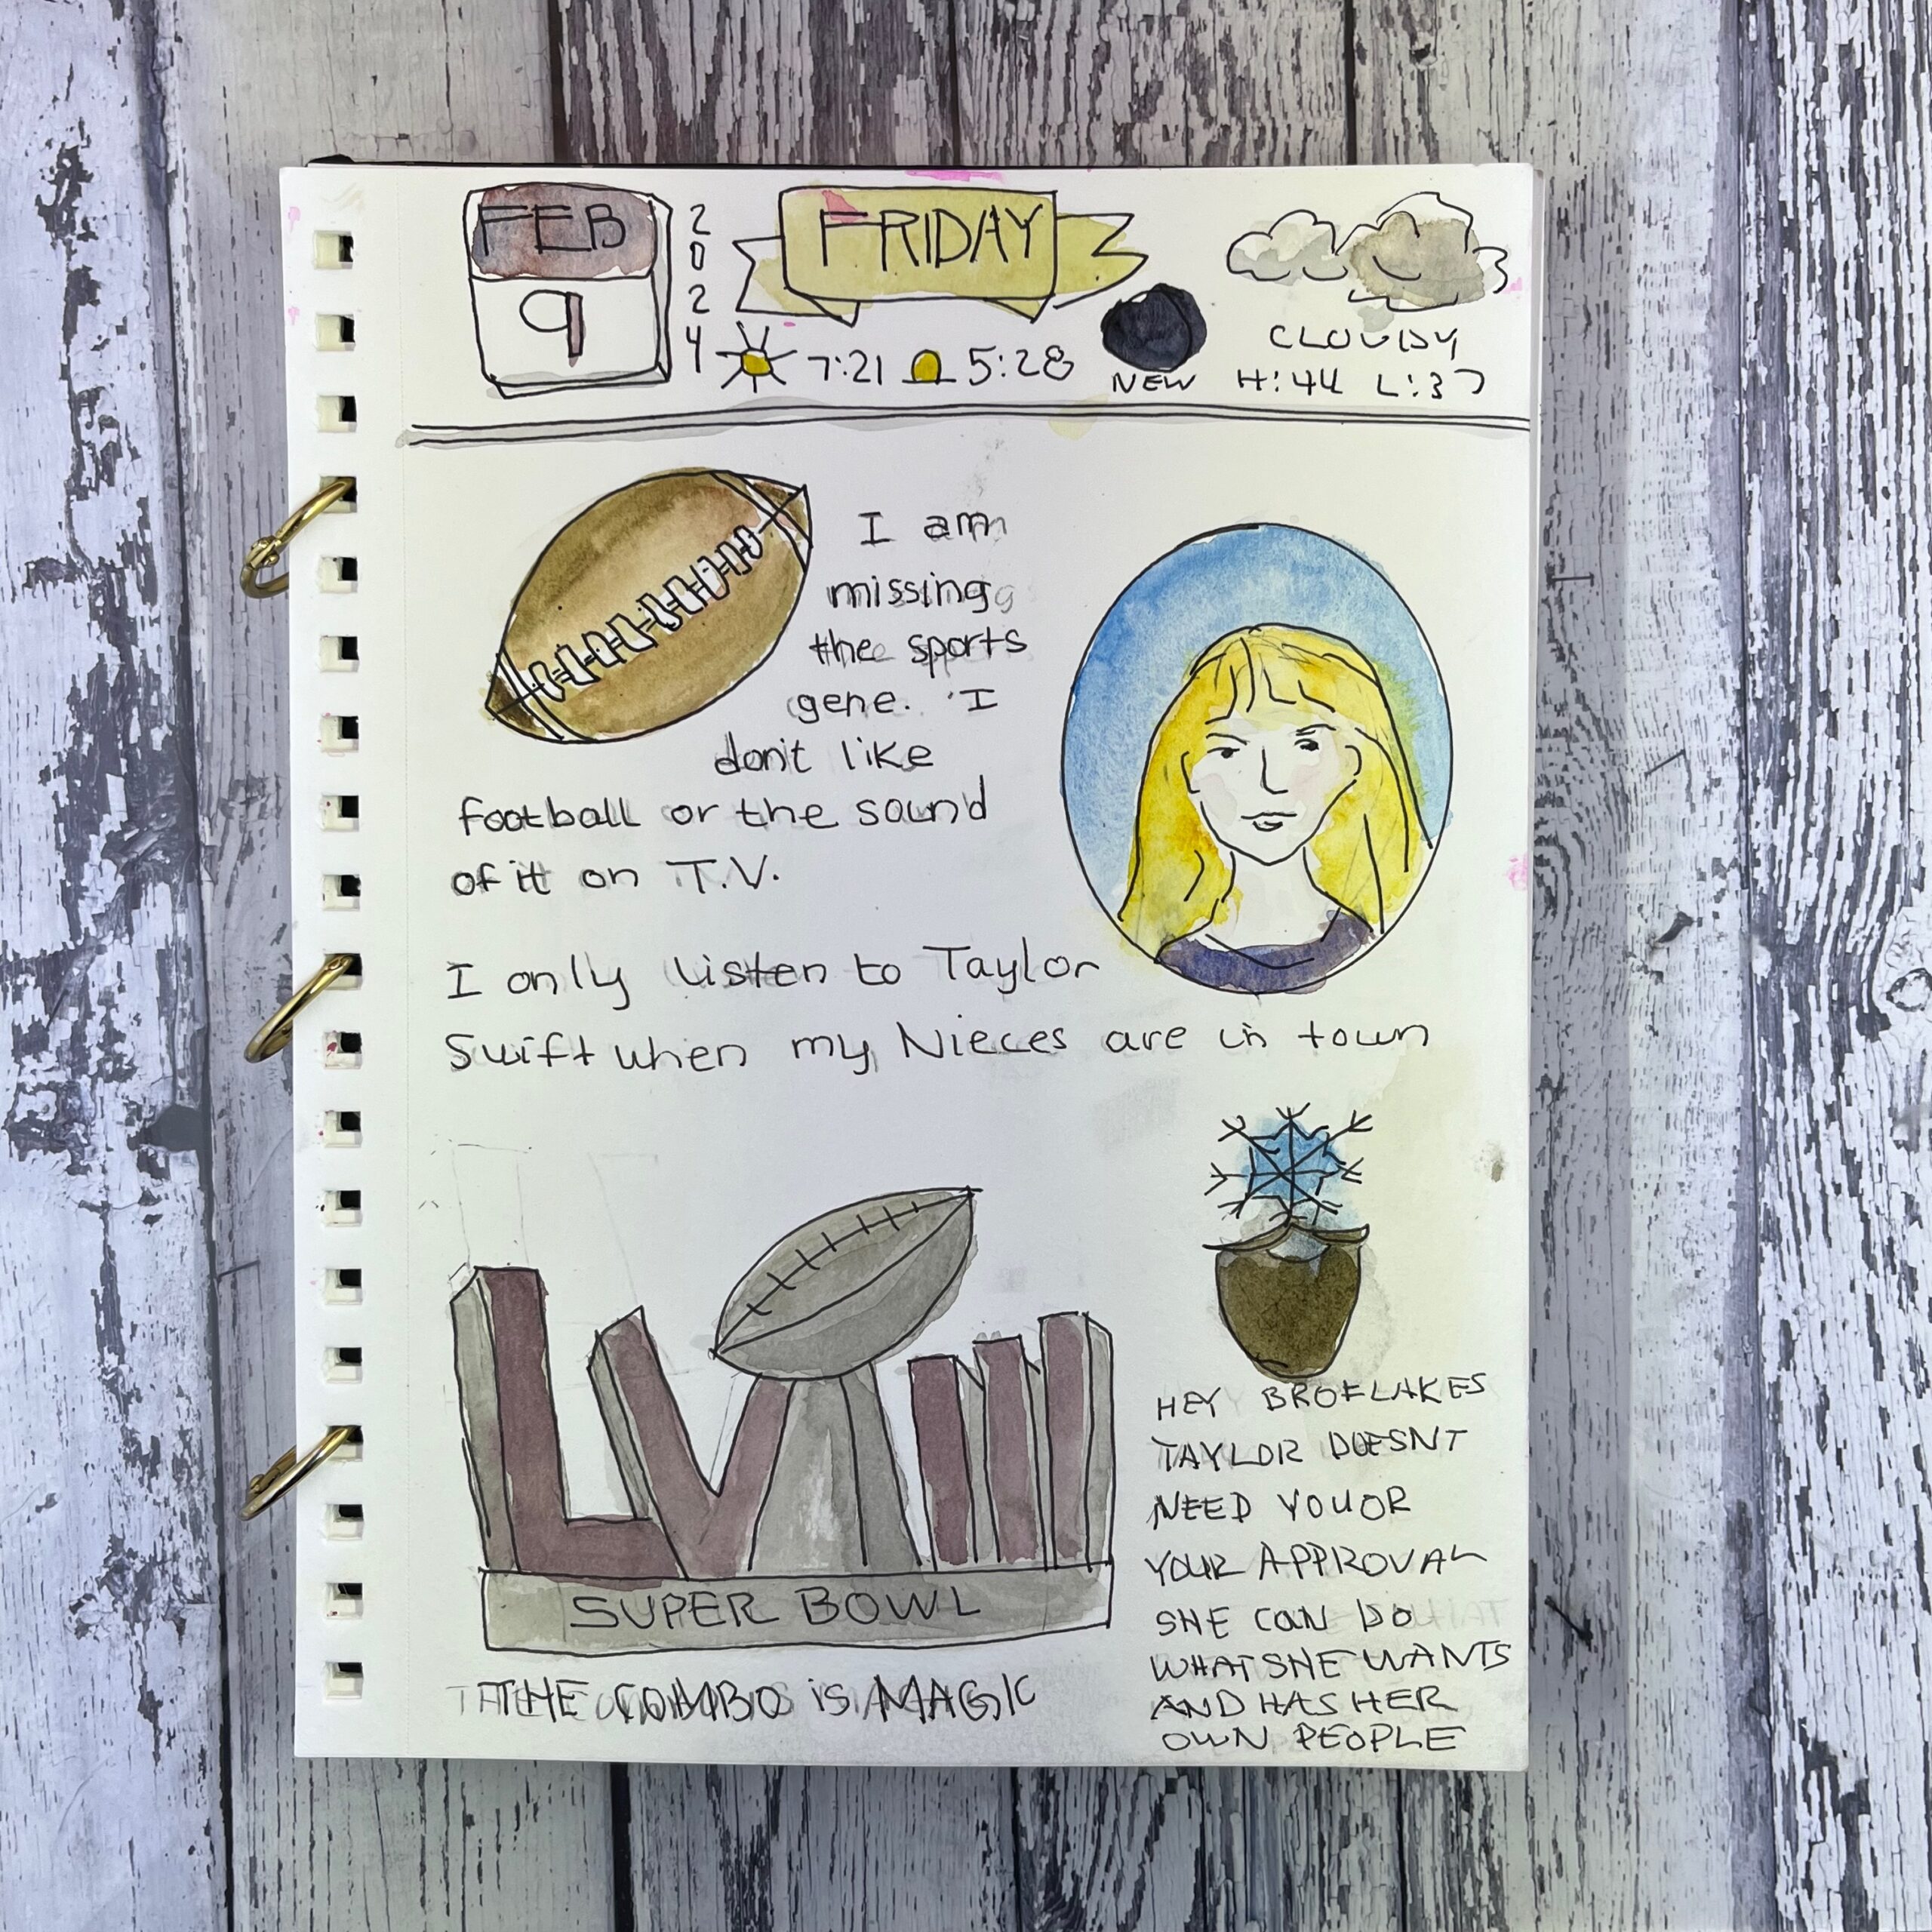 FEB
9
2024
FRIDAY
7:21 5:28
NEW
CLOUDY
H:44 L:37
I am
missing
the sports
gene. I
don't like
football or the sound
of it on T.V.
I only listen to Taylor
Swift when my Nieces are in town
LVIII
SUPER BOWL
THE COMBO is MAGIC
HEY BROFLAKES
TAYLOR DOESNT
NEED YOU OR
YOUR APPROVAL
SHE CAN DO
WHAT SHE WANTS
AND HAS HER
OWN PEOPLE